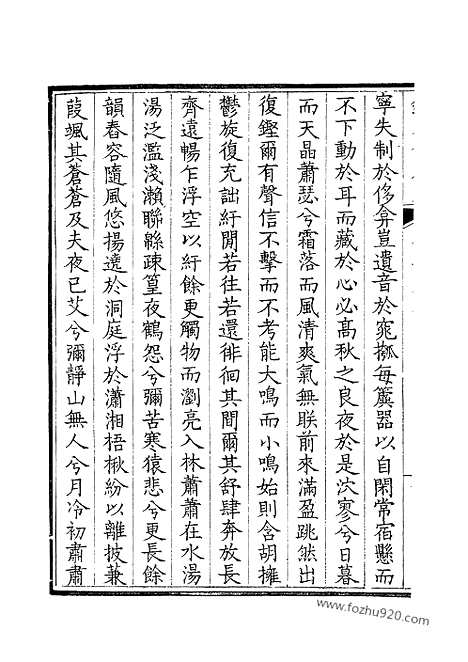 寧失制於侈弇豈遺音於窕摦每簴器以自閑常宿懸而
不下動於耳而藏於心必髙秋之良夜於是泬寥兮日暮
而天晶蕭瑟兮霜落而風清爽氣無朕前來滿盈跳然出
復鏗爾有聲信不擊而不考能大鳴而小鳴始則含胡擁
鬱旋復充詘紆閒若往若還徘徊其間爾其舒肆奔放長
齊遠暢乍浮空以紆餘更觸物而瀏亮入林蕭蕭在水湯
湯泛濫淺瀨聯緜疎篁夜鶴怨兮彌苦寒猿悲兮更長餘
韻舂容隨風悠揚遶於洞庭浮於瀟湘梧楸紛以離披兼
葭颯其蒼蒼及夫夜已艾兮彌靜山無人兮月冷初肅肅
www.fozhu920.com